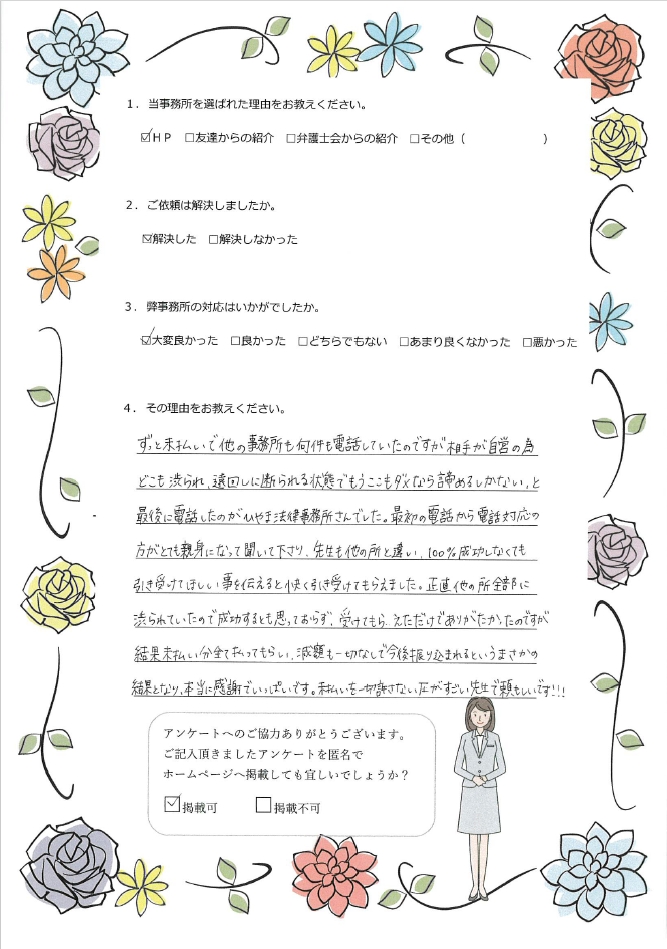 1. 当事務所を選ばれた理由をお教えください。
☑HP □友達からの紹介 □弁護士会からの紹介 □その他（ ）
2. ご依頼は解決しましたか。
☑解決した □解決しなかった
3. 弊事務所の対応はいかがでしたか。
☑大変良かった □良かった □どちらでもない □あまり良くなかった □悪かった
4. その理由をお教えください。
ずっと未払いで他の事務所も何件も電話していたのですが相手が自営の為
どこも渋られ、遠回しに断られる状態でもうここもダメなら諦めるしかない、と
最後に電話したのがひやま法律事務所さんでした。最初の電話から電話対応の
方がとても親身になって聞いて下さり、先生も他の所と違い、100%成功しなくても
引き受けてほしい事を伝えると快く引き受けてもらえました。正直他の所全部に
渋られていたので成功するとも思っておらず、受けてもらえただけでありがたかったのですが
結果未払い分全て払ってもらい、減額も一切なしで今後振り込まれるというまさかの
結果となり、本当に感謝でいっぱいです。未払いを一切許さない圧がすごい先生で頼もしいです!!!
アンケートへのご協力ありがとうございます。
ご記入頂きましたアンケートを匿名で
ホームページへ掲載しても宜しいでしょうか？
☑掲載可 □掲載不可